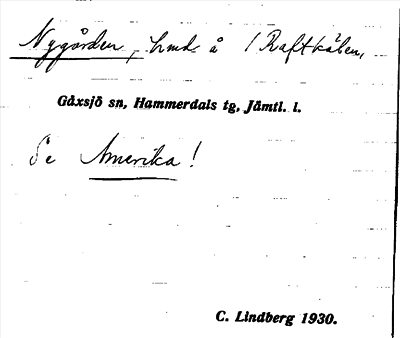 Nygården, hmd å 1 Raftkälen,
Gåxsjö sn, Hammerdals tg, Jämtl. l.
Se Amerika!
C. Lindberg 1930.